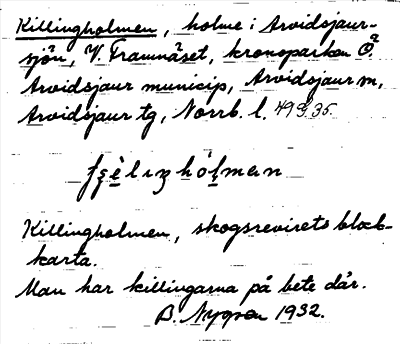 Killingholmen, holme i Arvidsjaur-
sjön, V. Framnäset, kronoparken Ö.
Arvidsjaur municip, Arvidsjaur m,
Arvidsjaur tg, Norrb. l. 499.35.
Killingholmen, skogsrevirets block-
karta.
Man har killingarna på bete där.
B. Nygren 1932.